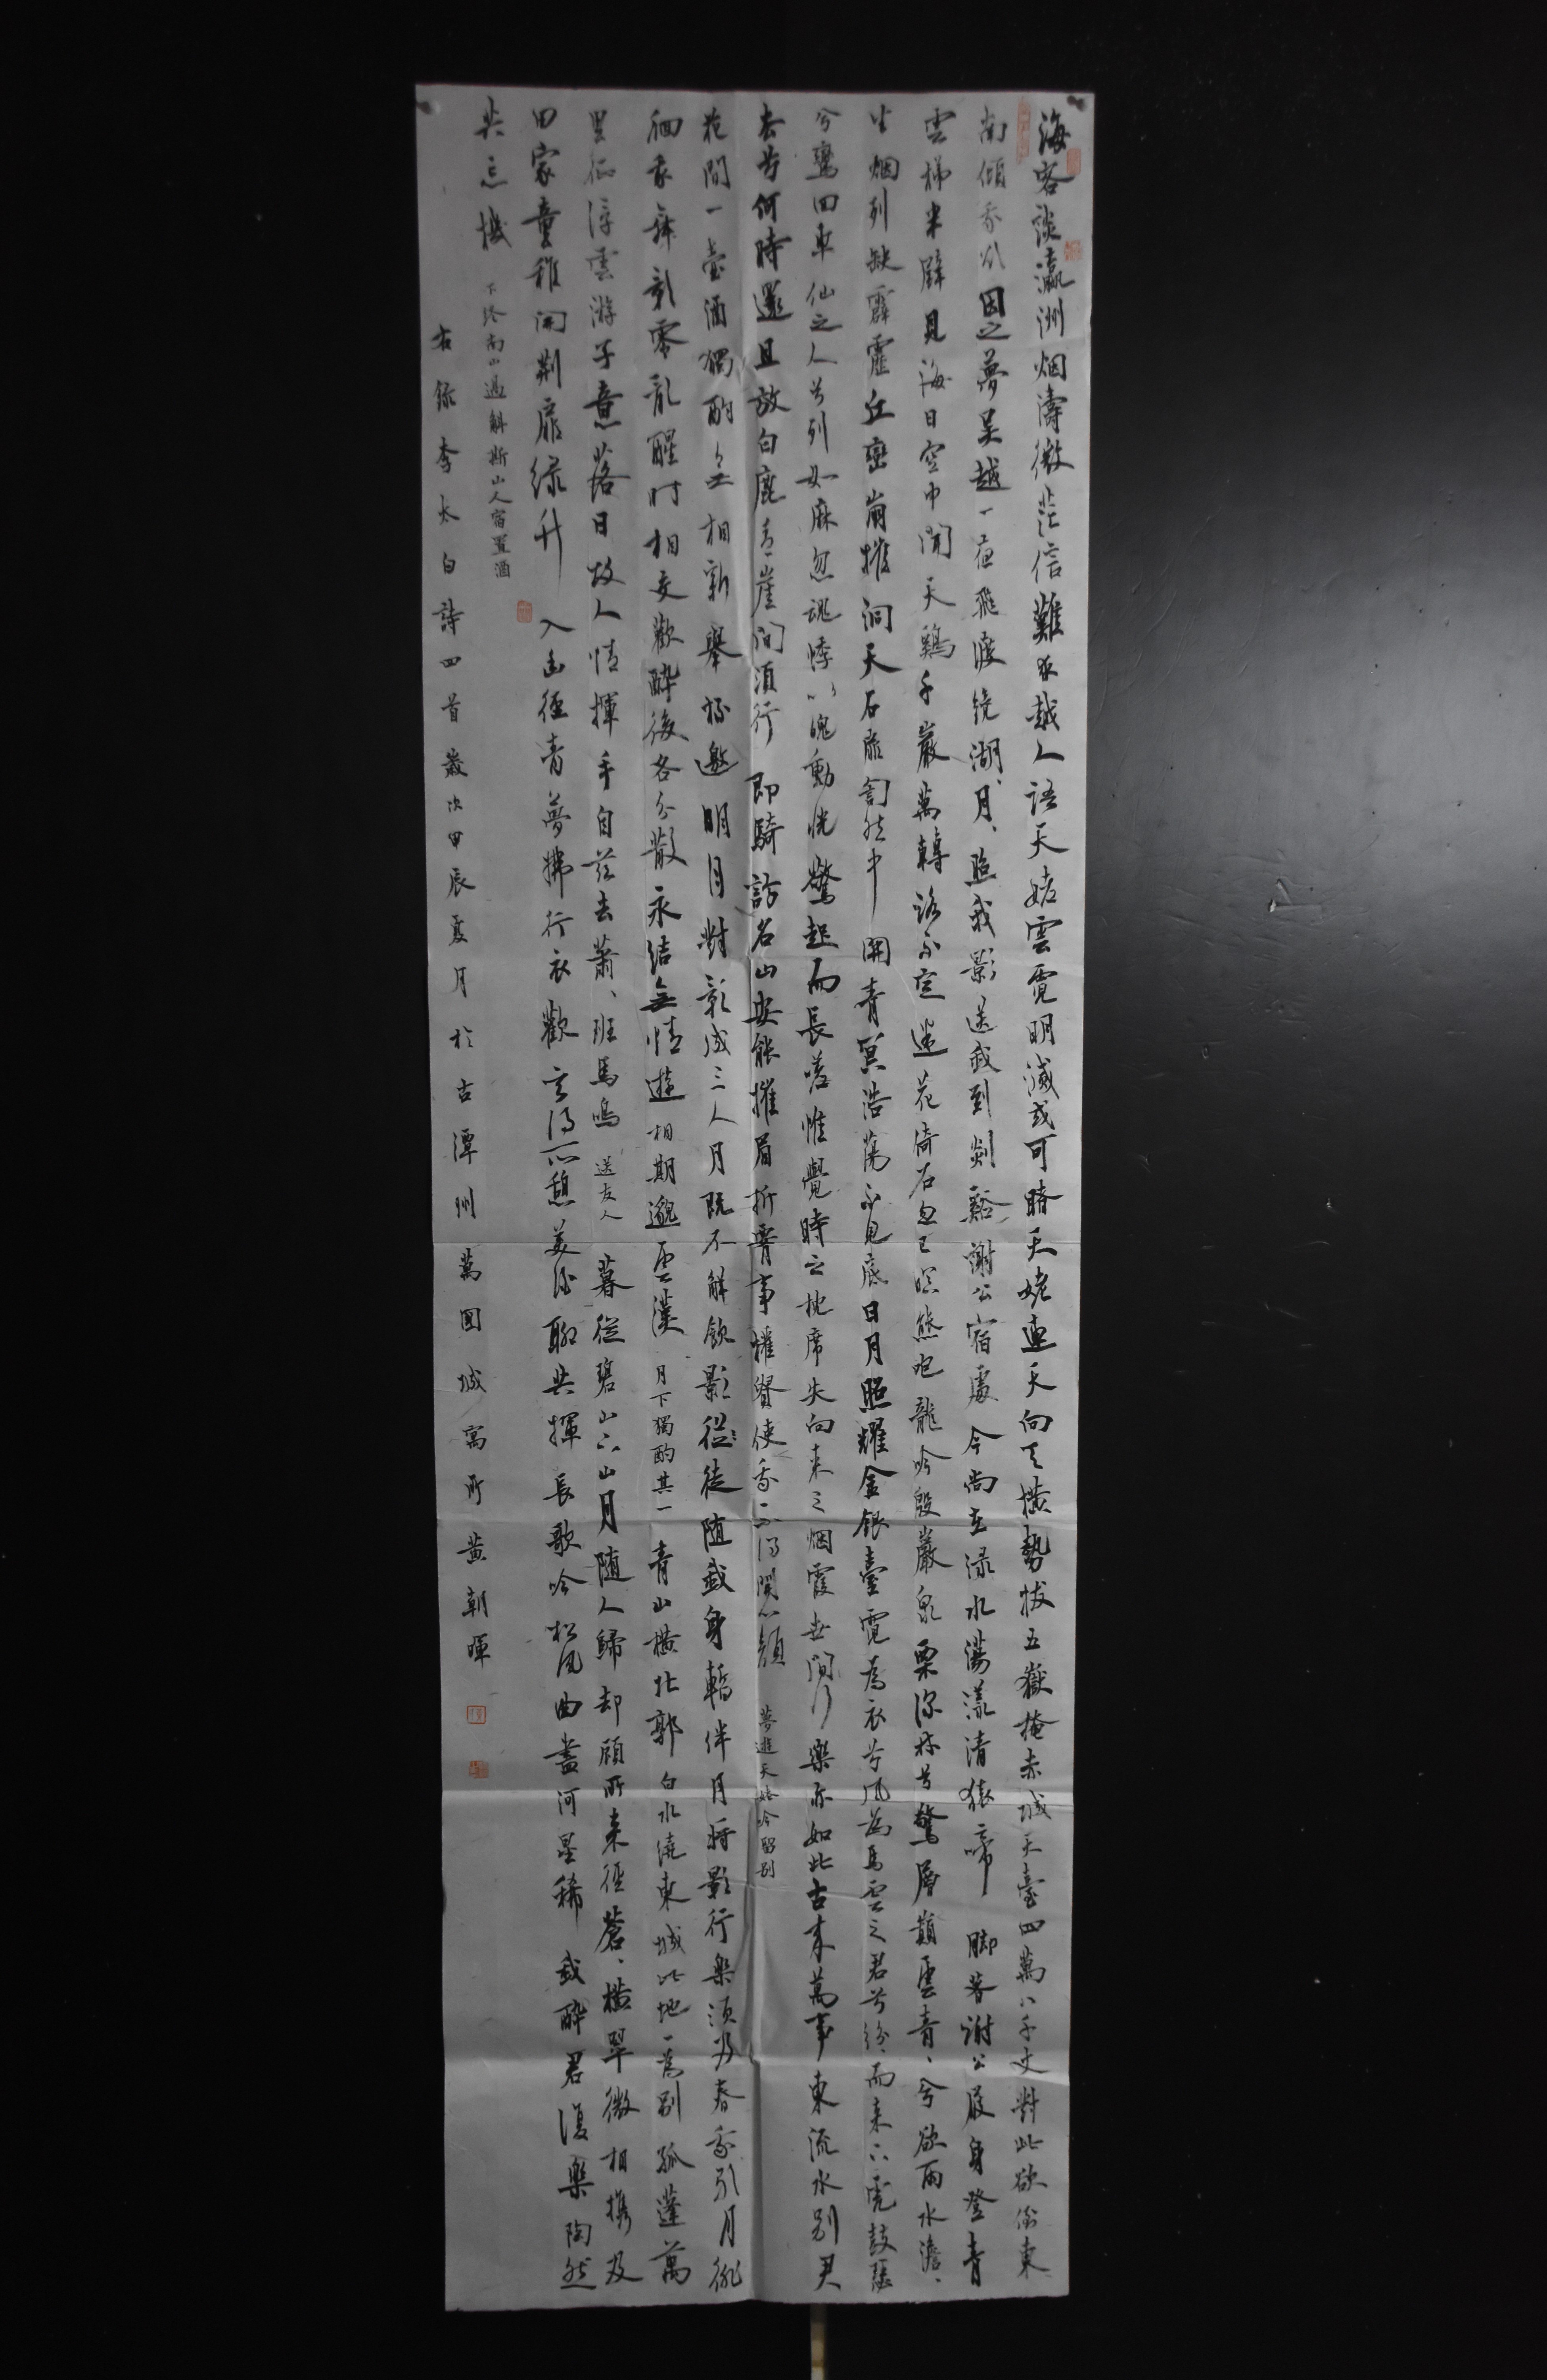 海客談瀛洲烟濤微茫信難求越人語天姥雲霓明滅或可睹天姥連天向天橫勢拔五嶽掩赤城天臺四萬八千丈對此欲倒東
南傾我欲因之夢吴越一夜飛渡鏡湖、月、照我影送我到剡谿謝公宿處今尚在渌水蕩漾清猿啼脚著謝公屐身登青
雲梯半壁見海日空中聞天鷄千巖萬轉路不定迷花倚石忽已暝熊咆龍吟殷巖泉栗深林兮驚層巔雲青、兮欲雨水澹、
生烟列缺霹靂丘巒崩摧洞天石扉訇然中開青冥浩蕩不見底日月照耀金銀臺霓為衣兮風為馬雲之君兮紛、而来下虎鼓瑟
兮鸞回車仙之人兮列如麻忽魂悸以魄動恍驚起而長嗟惟覺時之枕席失向来之烟霞世間行樂亦如此古来萬事東流水别君
去兮何時還且放白鹿青崖間須行即騎訪名山安能摧眉折腰事權貴使我不得開心顏 夢遊天姥吟留别
花間一壺酒獨酌無相親舉杯邀明月對影成三人月既不解飲影徒徒随我身暫伴月將影行樂須及春我歌月徘
徊我舞影零亂醒时相交歡醉後各分散永结無情遊相期邈雲漢 月下獨酌其一 青山橫北郭白水遶東城此地一為别孤蓬萬
里征浮雲游子意落日故人情揮手自兹去蕭、班馬鳴 送友人 暮從碧山下山月随人歸却顧所来徑蒼、橫翠微相携及
田家童稚開荆扉绿竹入幽徑青夢拂行衣歡言得所憩美酒聊共揮長歌吟松風曲盡河星稀我醉君復樂陶然
共忘機 下终南山過斛斯山人宿置酒
右録李太白詩四首歲次甲辰夏月於古潭州萬国城寓所黄朝暉